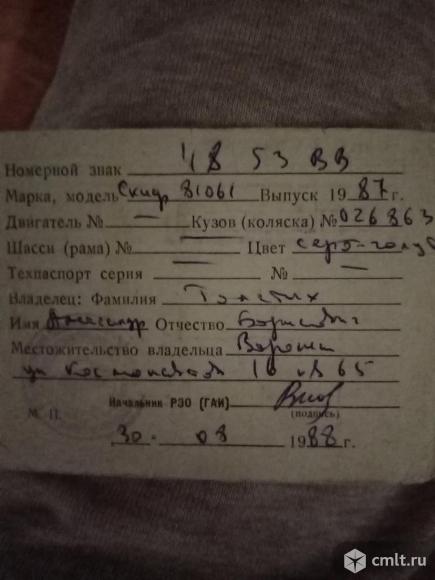 Номерной знак 4853 ВВ
Марка, модель Скиф 81061 Выпуск 1987 г.
Двигатель № — Кузов (коляска) № 026863
Шасси (рама) № — Цвет серо-голуб
Техпаспорт серия — № —
Владелец: Фамилия Толстых
Имя Александр Отчество Борисович
Местожительство владельца Воронеж
ул Космонавтов 16 кв 65
Начальник РЭО (ГАИ)
М. П. (подпись)
30. 08 1988 г.
cmlt.ru